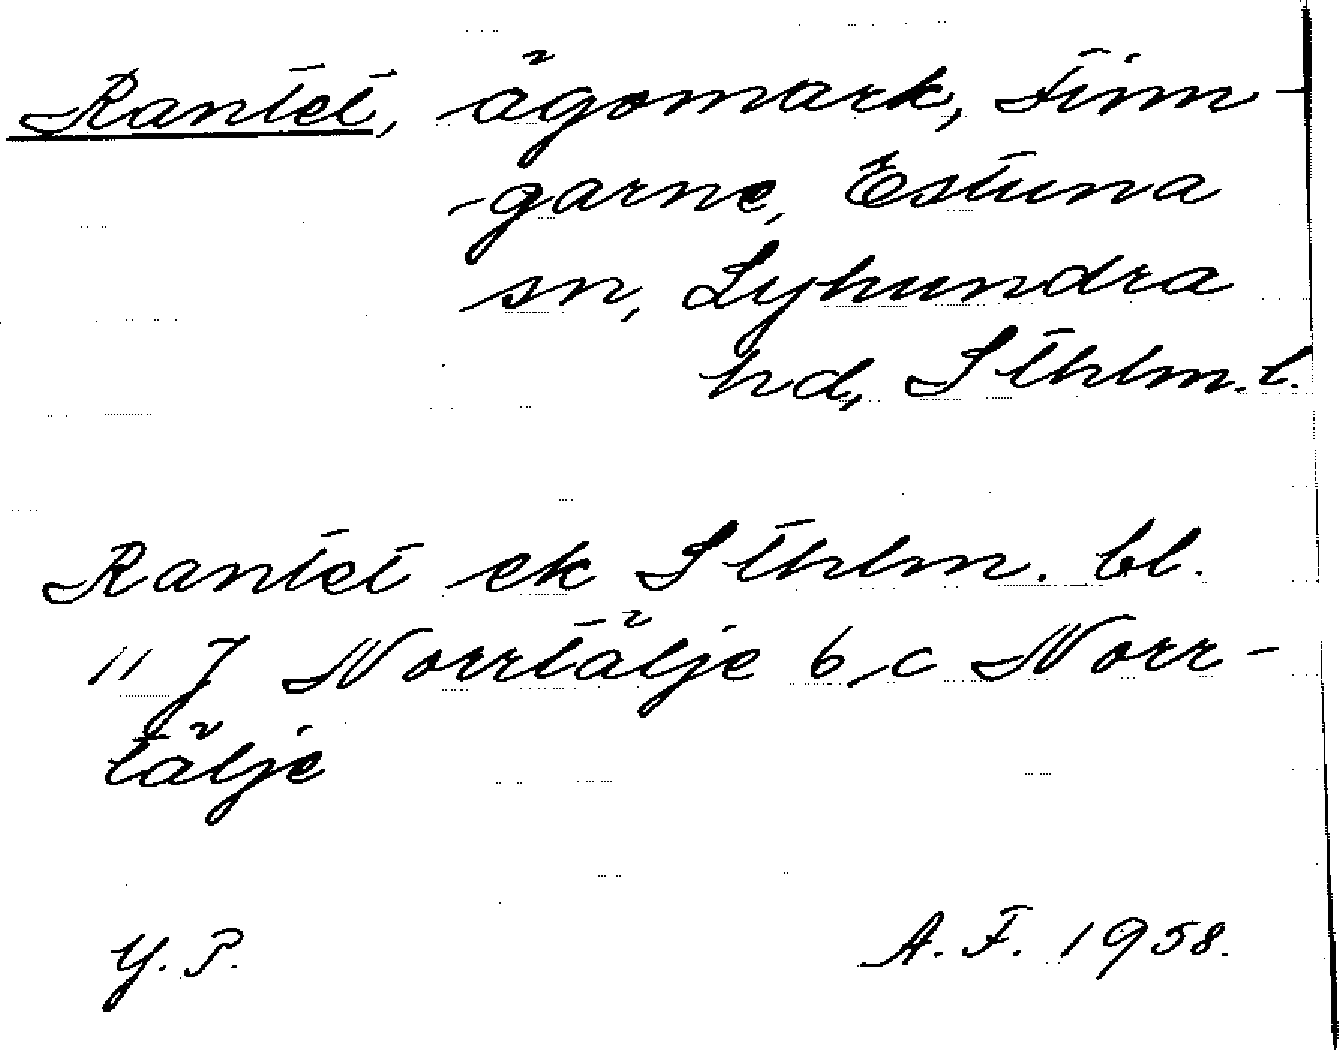 Rantet, ägomark, Finn-
garne, Estuna
sn, Lyhundra
hd, Sthlm. l.
Rantet ek Sthlm. bl.
11 J Norrtälje b, c Norr-
tälje
Y. P. A. F. 1958.